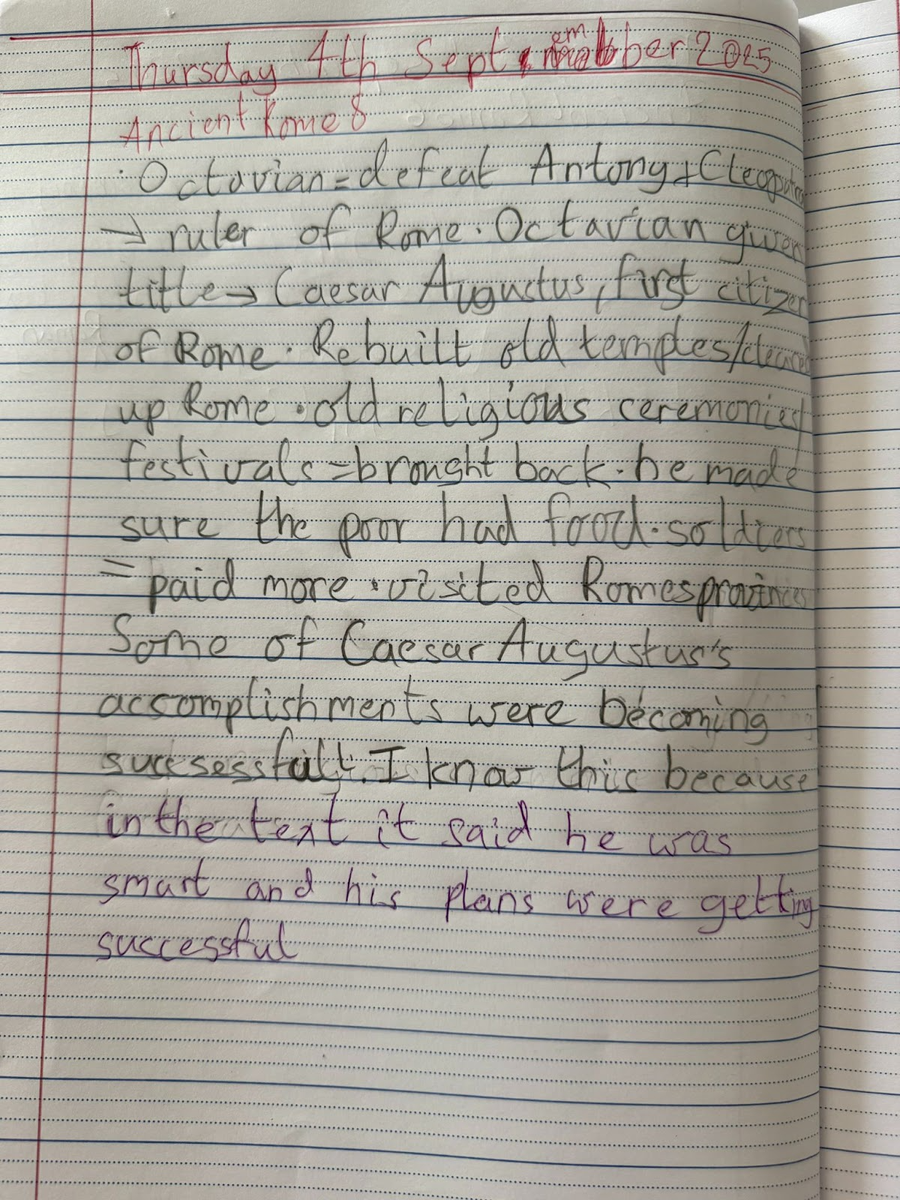 Thursday 4th September 2025
Ancient Rome 8
· Octavian = defeat Antony + Cleopatra
→ ruler of Rome · Octavian given
title → Caesar Augustus, first citizen
of Rome · Rebuilt old temples/cleared
up Rome · old religious ceremonies
festivals = brought back · he made
sure the poor had food · soldiers
= paid more · visited Romes provinces
Some of Caesar Augustus's
accomplishments were becoming
sucsessfull. I know this because
in the text it said he was
smart and his plans were getting
successful